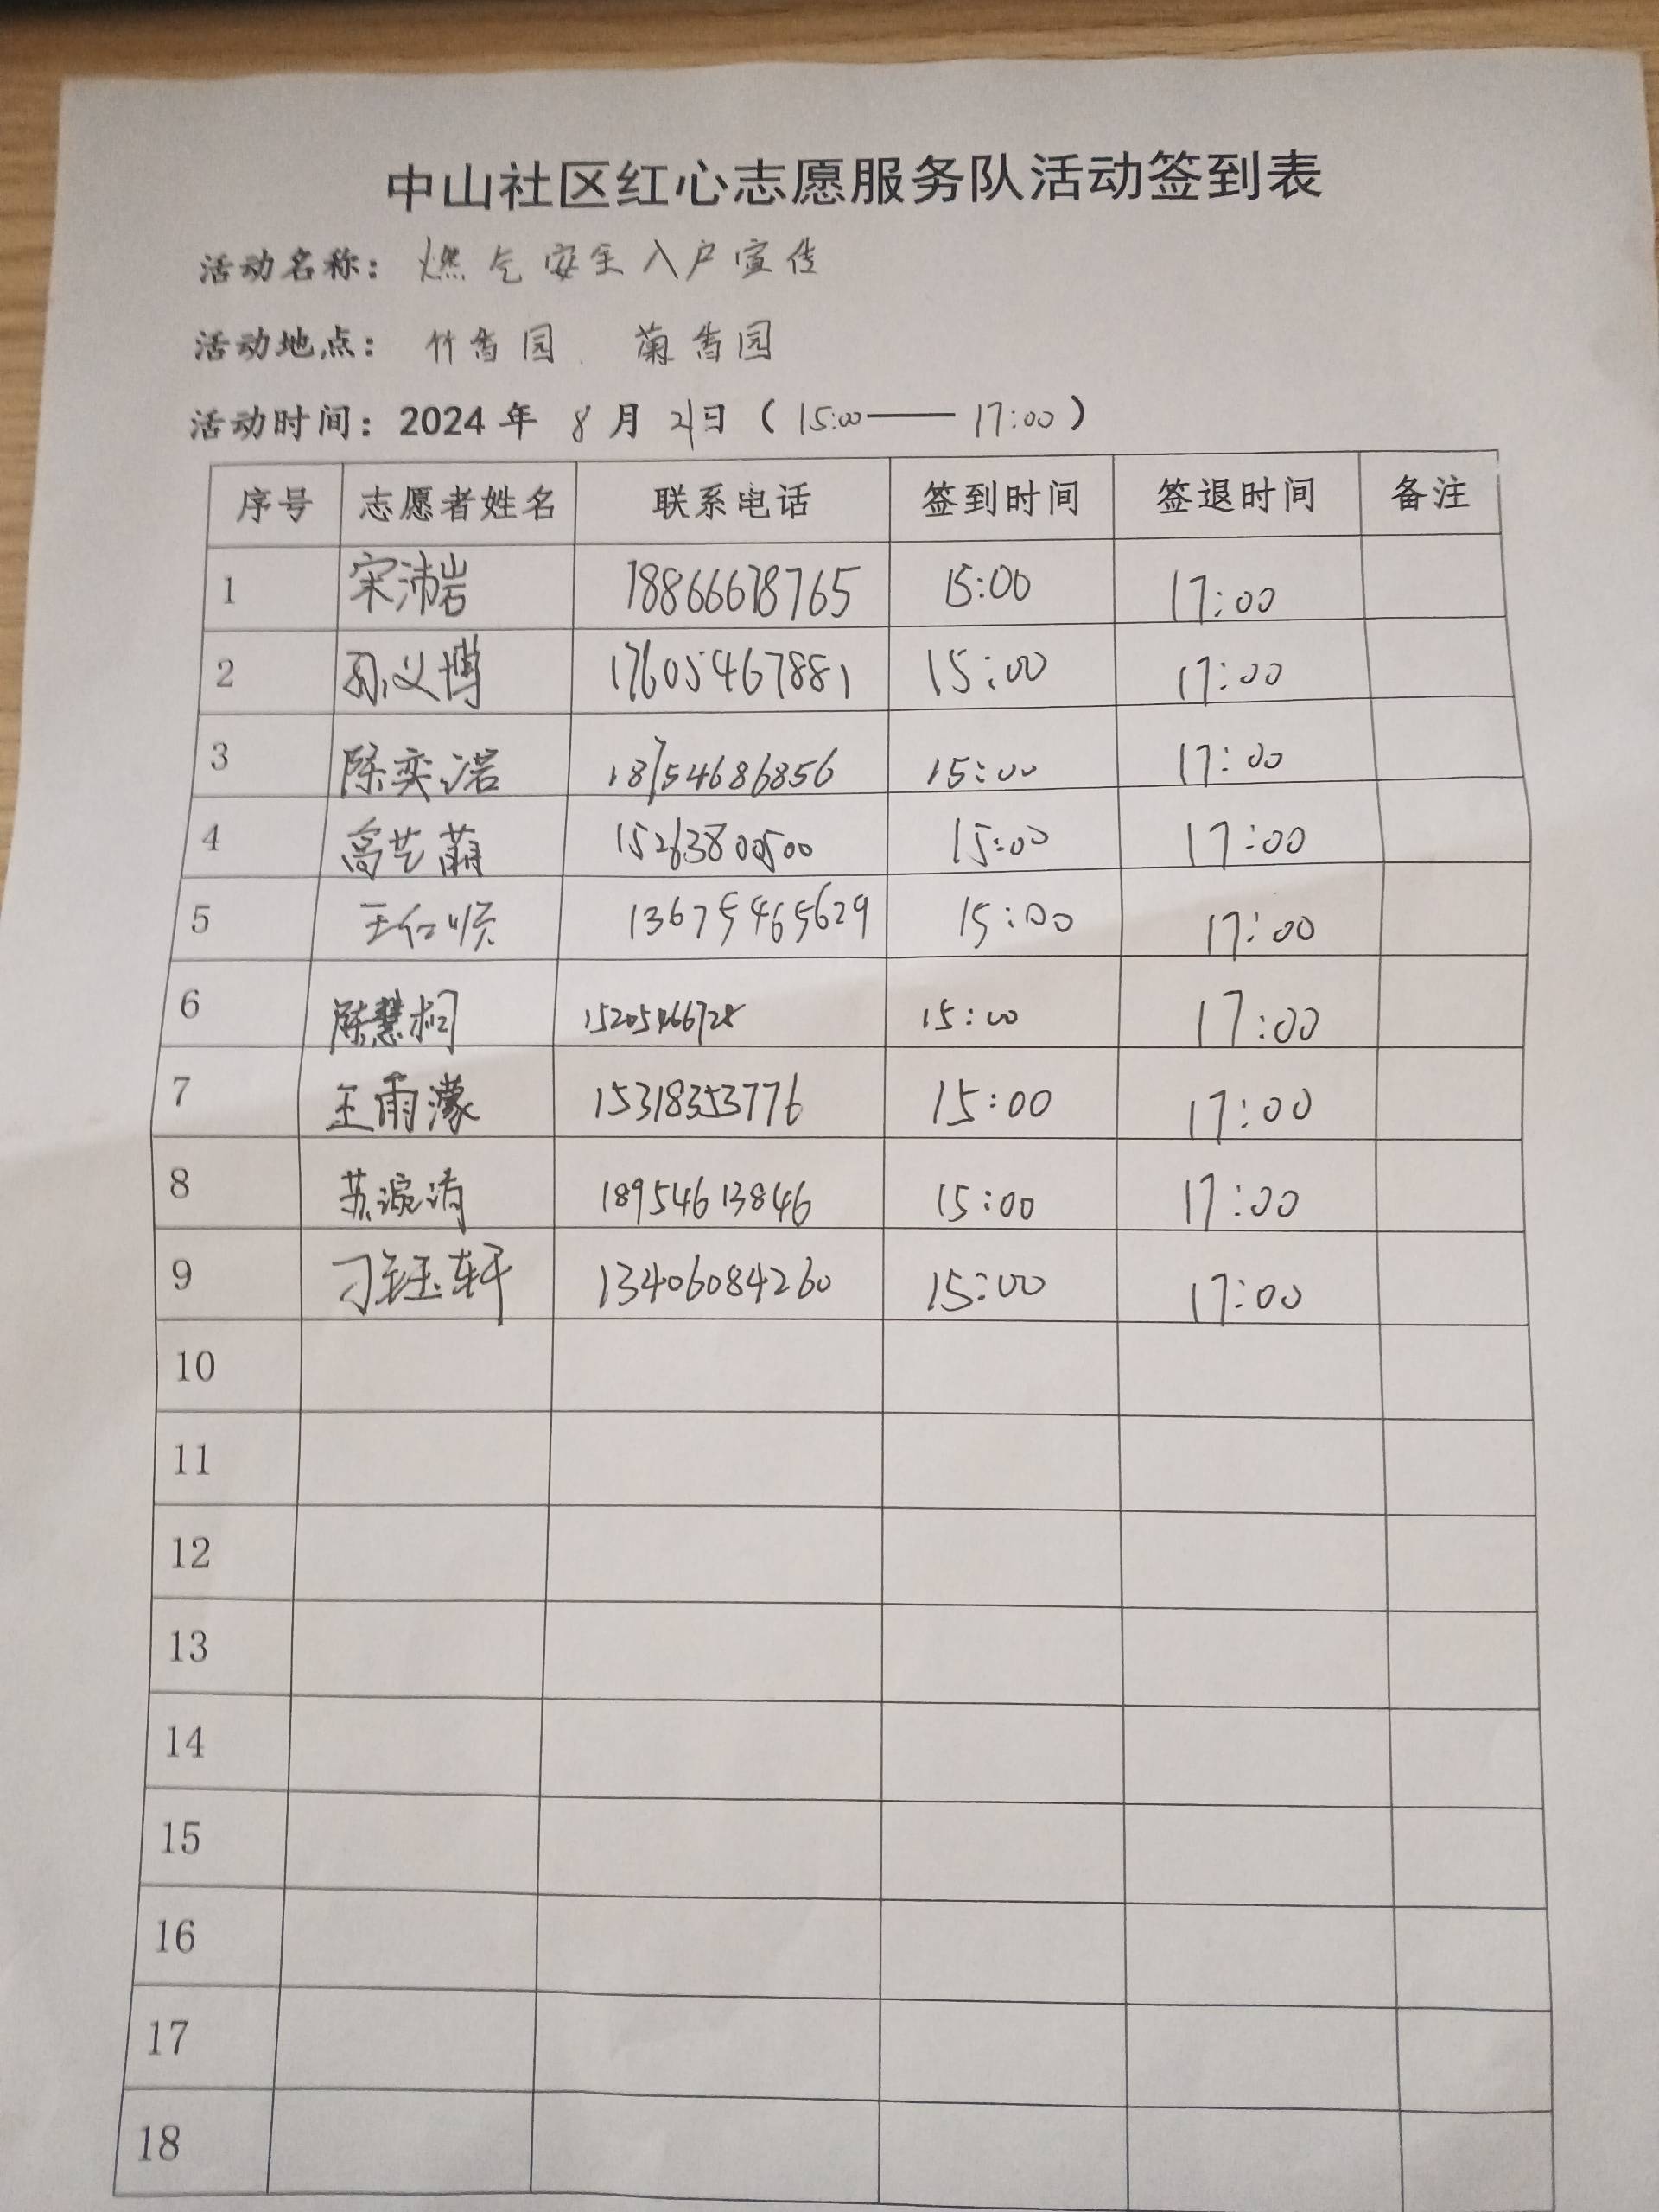 中山社区红心志愿服务队活动签到表
活动名称：燃气安全入户宣传
活动地点：竹香园、菊香园
活动时间：2024年 8月 21日（15:00——17:00）
序号 志愿者姓名 联系电话 签到时间 签退时间 备注
1 宋沛岩 18866678765 15:00 17:00
2 孙义博 17605467881 15:00 17:00
3 陈奕诺 18754686856 15:00 17:00
4 高艺萌 15263800500 15:00 17:00
5 王仁顺 13675465629 15:00 17:00
6 陈慧桐 15:00 17:00
7 王雨濛 15318353776 15:00 17:00
8 苏涴清 18954613846 15:00 17:00
9 刁钰轩 13406084260 15:00 17:00
10
11
12
13
14
15
16
17
18